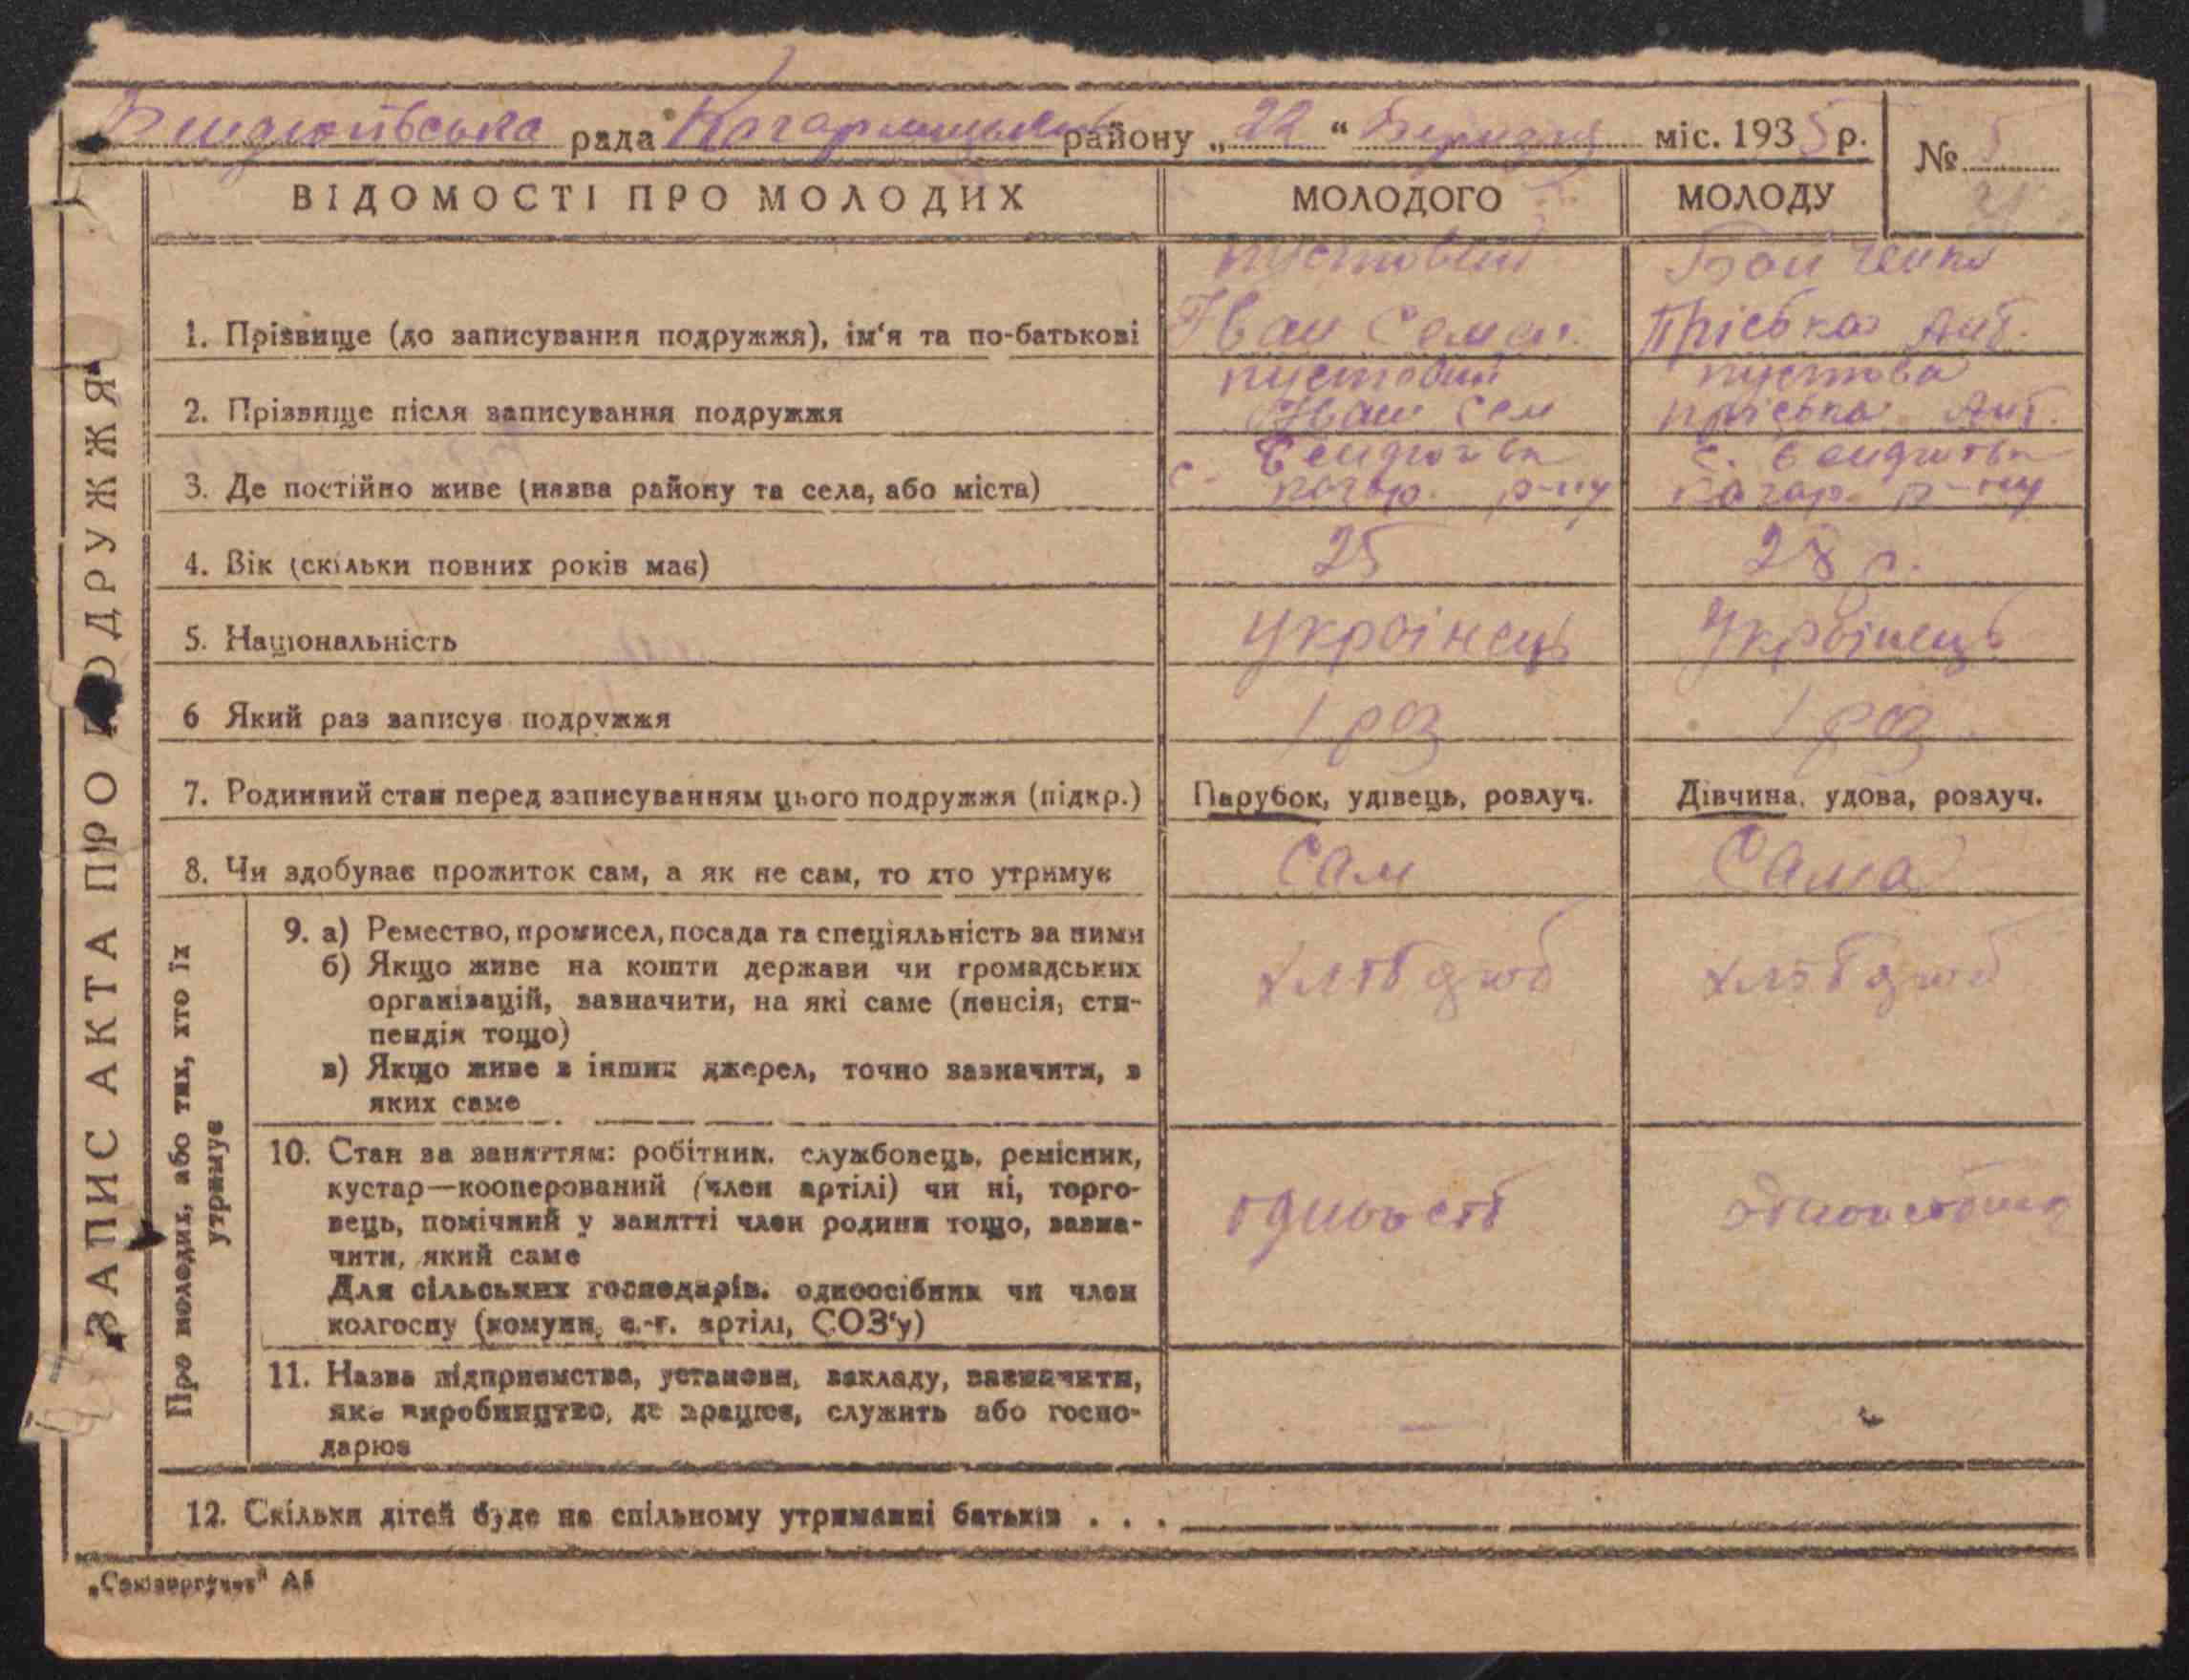 рада Кагарлицького району „22“ Березня міс. 1935 р.
№ 5
ЗАПИС АКТА ПРО ПОДРУЖЖЯ
ВІДОМОСТІ ПРО МОЛОДИХ МОЛОДОГО МОЛОДУ
пустовий Бойченко
1. Прізвище (до записування подружжя), ім‘я та по-батькові Іван Семен. Пріська Ант.
пустовий пустова
2. Прізвище після записування подружжя Іван Сем пріська Ант.
с. Бендюгівка с. Бендюгівка
3. Де постійно живе (назва району та села, або міста) кагар. р-ну Кагар. р-ну
4. Вік (скільки повних років має) 25 28 р.
5. Національність Українець Українець
6 Який раз записує подружжя 1 раз 1 раз
7. Родинний стан перед записуванням цього подружжя (підкр.) Парубок, удівець, розлуч. Дівчина, удова, розлуч.
8. Чи здобуває прожиток сам, а як не сам, то хто утримує Сам Сама
Про молодих, або тих, хто їх утримує
9. а) Ремество, промисел, посада та спеціяльність за ними
б) Якщо живе на кошти держави чи громадських хлібороб хлібороб
організацій, зазначити, на які саме (пенсія, сти-
пендія тощо)
в) Якщо живе з інших джерел, точно зазначити, з
яких саме
10. Стан за заняттям: робітник, службовець, ремісник,
кустар—кооперований (член артілі) чи ні, торго-
вець, помічний у занятті член родини тощо, зазна- одноосіб одноосібниця
чити, який саме
Для сільських господарів: одноосібник чи член
колгоспу (комуни, с.-г. артілі, СОЗ‘у)
11. Назва підприємства, установи, закладу, зазначити,
яке виробництво, де працює, служить або госпо- —
дарює
12. Скільки дітей буде на спільному утриманні батьків . . .